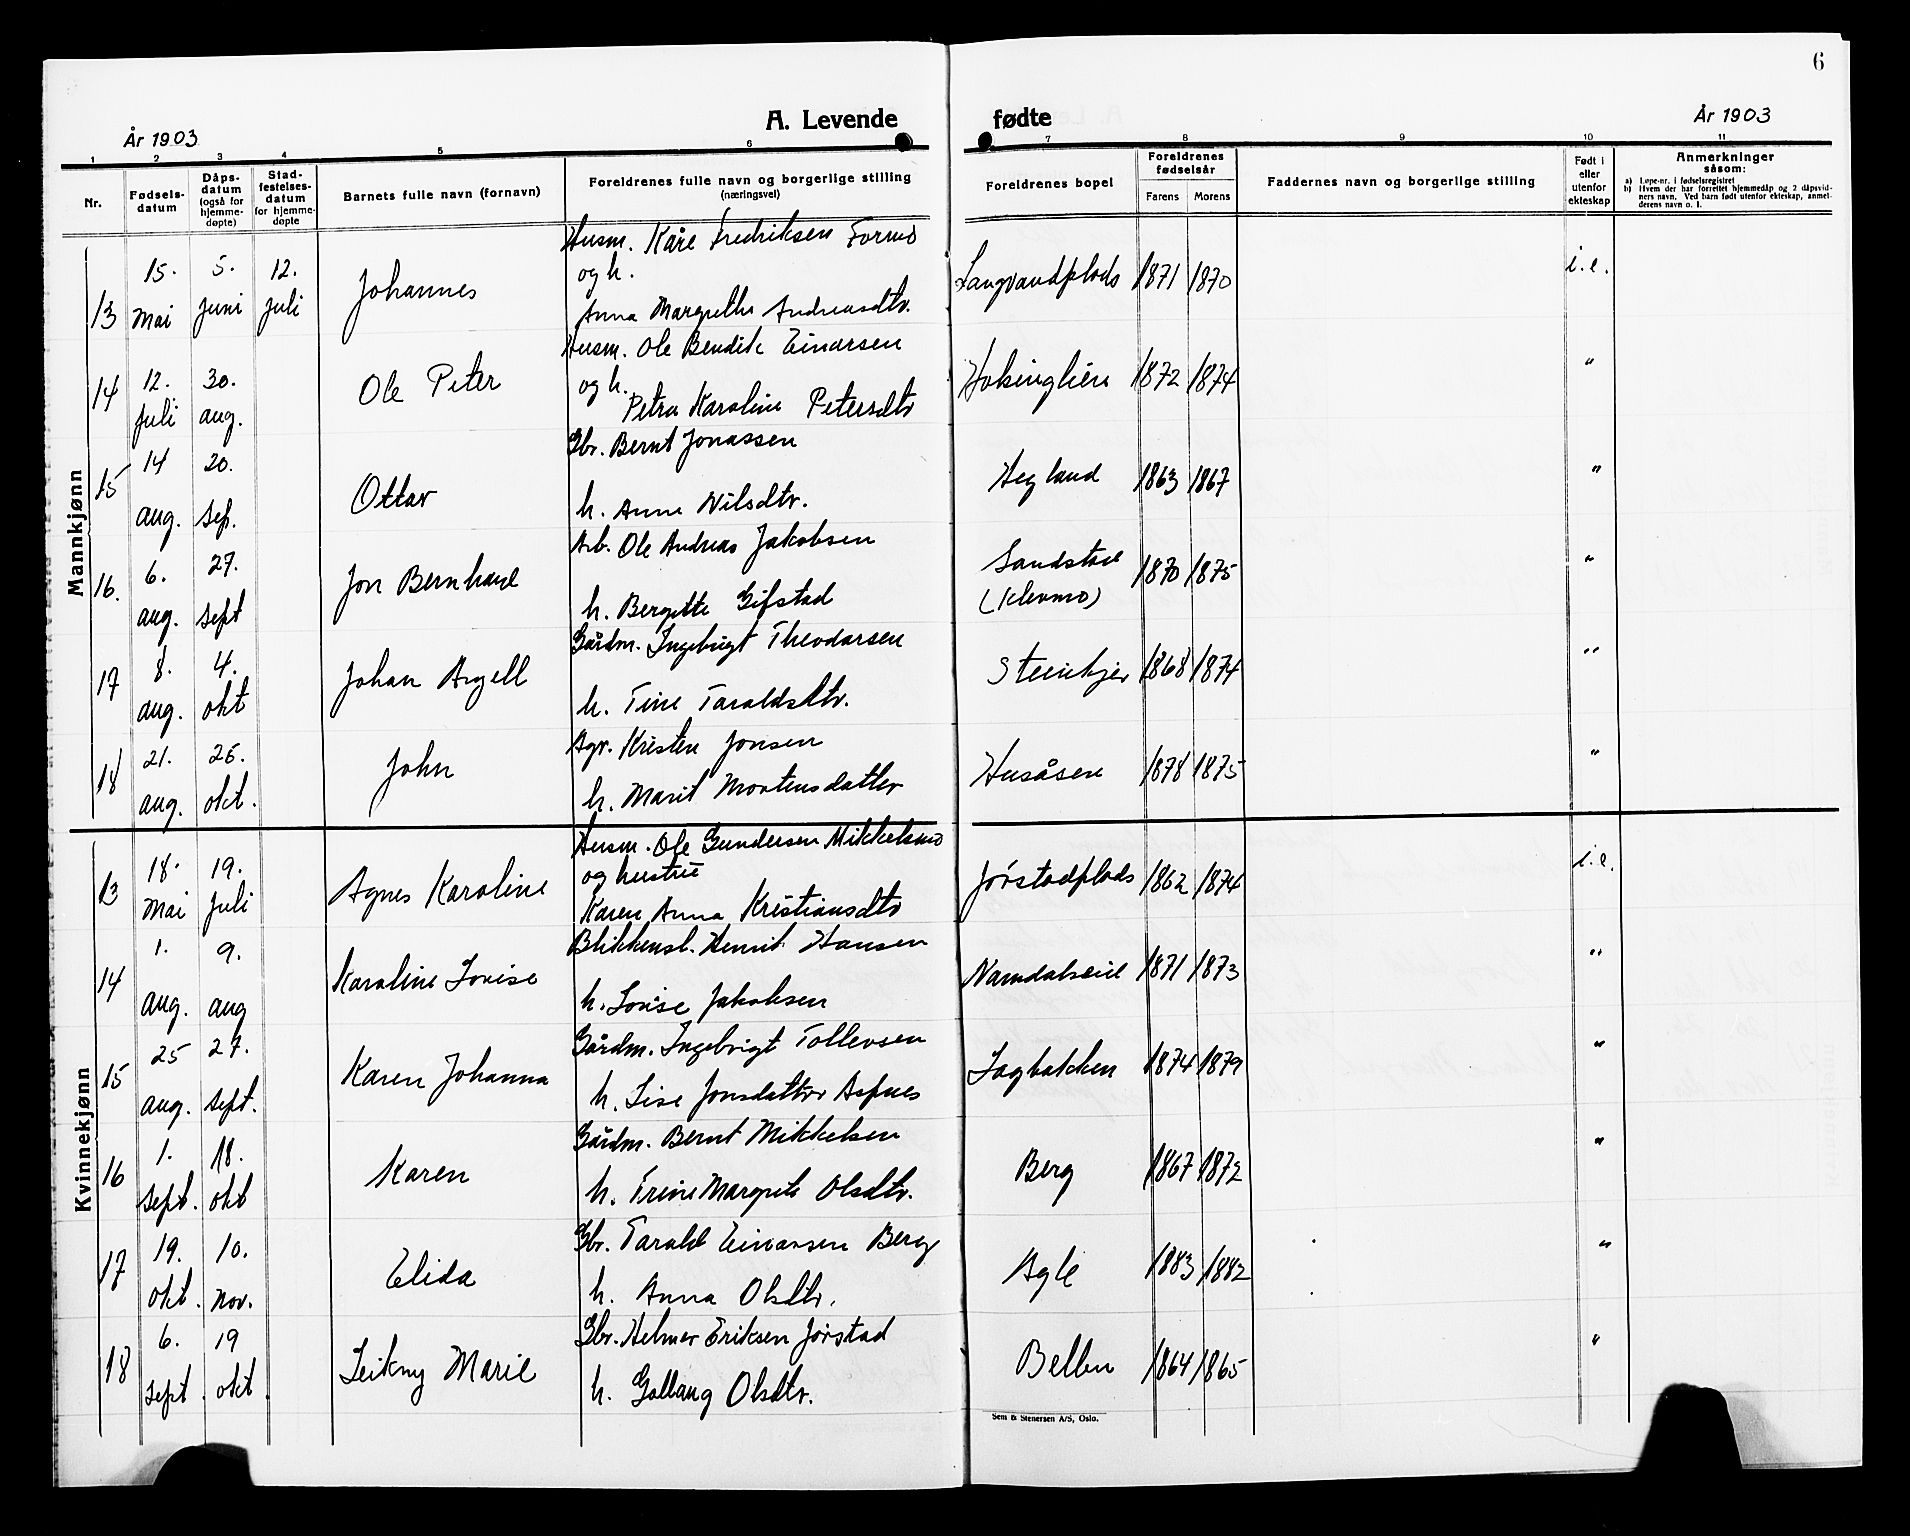 6
A. Levende fødte
År 1903
År 1903
1 2 3 4 5 6 7 8 9 10 11
Nr.
Fødsels-
datum
Dåps-
datum
(også for
hjemme-
døpte)
Stad-
festelses-
datum
for hjemme-
døpte
Barnets fulle navn (fornavn)
Foreldrenes fulle navn og borgerlige stilling
(næringsvei)
Foreldrenes bopel
Foreldrenes
fødselsår
Farens Morens
Faddernes navn og borgerlige stilling
Født i
eller
utenfor
ekteskap
Anmerkninger
såsom:
a) Løpe-nr. i fødselsregistret
b) Hvem der har forrettet hjemmedåp og 2 dåpsvid-
ners navn. Ved barn født utenfor ekteskap, anmel-
derens navn o. l.
Mannkjønn
Husm. Kåre Fredriksen Formo
13 15. Mai 5. juni 12. juli Johannes og h. Langvandplads 1871 1870 i. e.
Anna Margrethe Andreasdtr.
Husm. Ole Bendik Einarsen
14 12. juli 30. aug. Ole Peter og h. 1872 1874 "
Petra Karoline Petersdtr
Gbr. Bernt Jonassen
15 14 aug. 20. sep. Ottar Hegland 1863 1867 "
h. Anne Nilsdtr.
Arb. Ole Andreas Jakobsen
16. 6. aug. 27. sept Jon Bernhard Sandstad 1870 1875 "
(Klevmo)
h. Bergitte Gifstad
Gårdm. Ingebrigt Theodorsen
17 8. aug. 4. okt Johan Argell Steinkjer 1868 1874 "
h. Tine Taraldsdtr.
Agr. Kristen Jonsen
18 21. aug. 25. okt. John Husåsen 1878 1875 "
h. Marit Mortensdatter
Kvinnekjønn
Husm. Ole Gundersen Mikkelsmo
13 18. Mai 19. juli Agnes Karoline og hustru Jørstadplads 1862 1874 i. e.
Karen Anna Kristiansdtr
Blikkensl. Henrik Hansen
14 1. aug. 9. aug Karoline Lovise Namdalseid 1871 1873 "
h. Lovise Jakobsen
Gårdm. Ingebrigt Tollevsen
15 25 aug. 27. sept. Karen Johanna Sagbakken 1874 1879 "
h. Lise Jonsdatter Aspnes
Gårdm. Bernt Mikkelsen
16 1. sept. 18. okt Karen Berg 1867 1872 "
h. Trine Margrete Olsdtr.
Gbr. Tarald Einarsen Berg
17 19. okt. 10. nov. Elida Agle 1883 1882 "
h. Anna Olsdtr.
Gbr. Helmer Eriksen Jørstad
18 6. sept. 19 okt. Leikny Marie 1864 1865 "
h. Gollaug Olsdtr.
Sem & Stenersen A/S, Oslo.